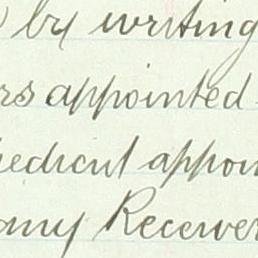 by writing
rs appointed
edient appoin
any Receiver